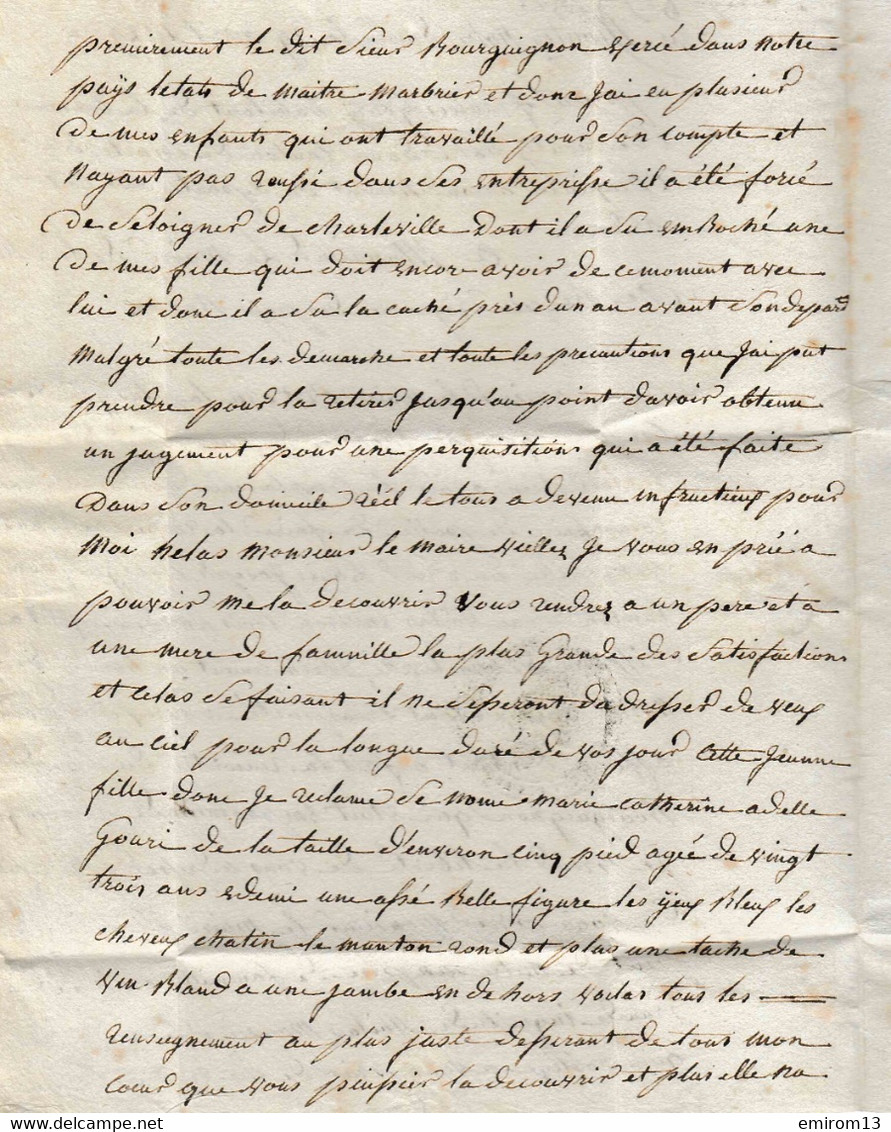 premirement le dit sieur Bourguignon exercé dans notre
pays letats de maitre marbrier et donc Jai eu plusieur
de mes enfants qui ont travaillé pour son compte et
nayant pas reussi dans ses entreprisse il a été forcé
de seloigner de charleville dont il a su emboché une
de mes fille qui doit encore avoir de cemoment avec
lui et donc il a su la caché près dun an avant son depard
malgré toute les demarche et toute les precautions que Jai put
prendre pour la retirer Jusqu'au point davoir obtenu
un jugement pour une perquisitions qui a été faite
dans son domicile le tous a devenu infructieux pour
moi helas monsieur le maire viellez Je vous en prié a
pouvoir me la decouvrir vous rendrez a un pere et a
une mere de famnille la plus grande des satisfactions
et celas se faisant il ne sesseront dadresser de veux
au ciel pour la longue duré de vos jour cette Jeunne
fille donc Je reclame se nome marie catherine adelle
Gouri de la taille d'environ cinq pied agée de vingt
trois ans edemi une assé Belle figure les yeux Bleux les
cheveux chatin le manton rond et plus une tache de
vin Bland a une jambe en de hors voilas tous les
renseignement au plus juste desperant de tous mon
coeur que vous puissier la decouvrir et plus elle na
emirom13